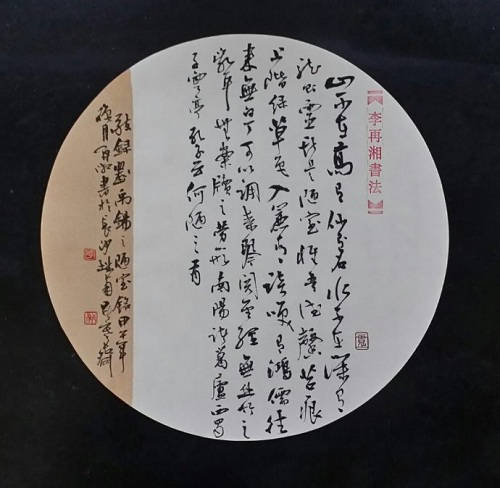 【李再湘書法】
山不在高有仙則名水不在深有
龍則靈斯是陋室惟吾德馨苔痕
上階绿草色入簾青談笑有鴻儒往
来無白丁可以調素琴閲金經無丝竹之
亂耳無案牘之勞形南陽諸葛廬西蜀
子雲亭孔子云何陋之有
敬録劉禹锡之陋室銘甲午年
月再湘書於長沙